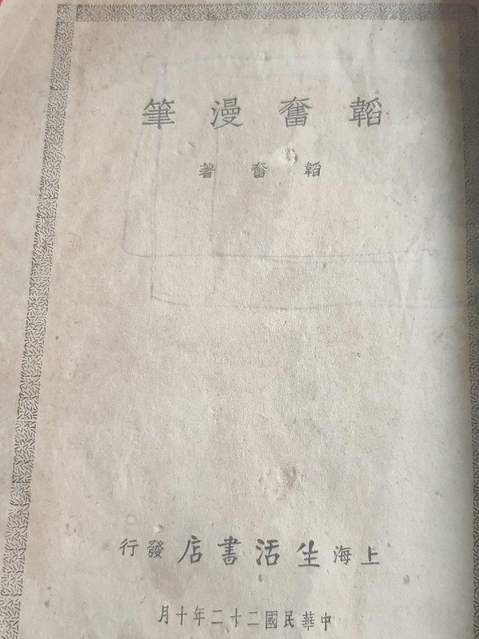 韜奮漫筆
韜奮著
上海生活書店發行
中華民國二十二年十月